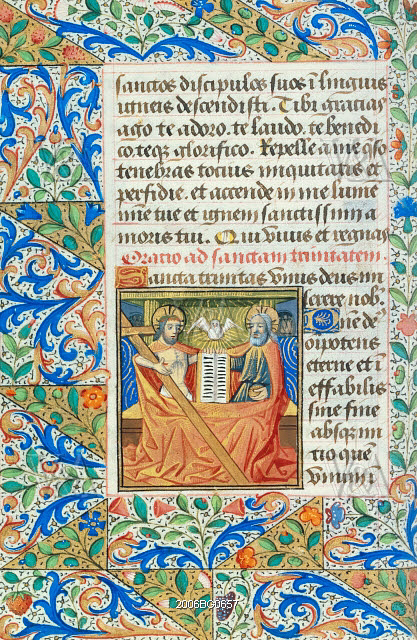 sanctos discipulos suos ī linguis
igneis descendisti. Tibi gracias
ago te adoro. te laudo. te benedi
co teq; glorifico. Repelle a me q̄so
tenebras tocius iniquitatis et
perfidie. et accende in me lumē
mīe tue et ignem sanctissimi a
moris tui. Qui viuis et regnas
Oratio ad sanctam trinitatem
Sancta trinitas vnus deus mi
serere nob.
ne de
omptens
eterne et ī
effabilis
sine fine
absq; ini
tio quē
vnum ī
2006BG0657